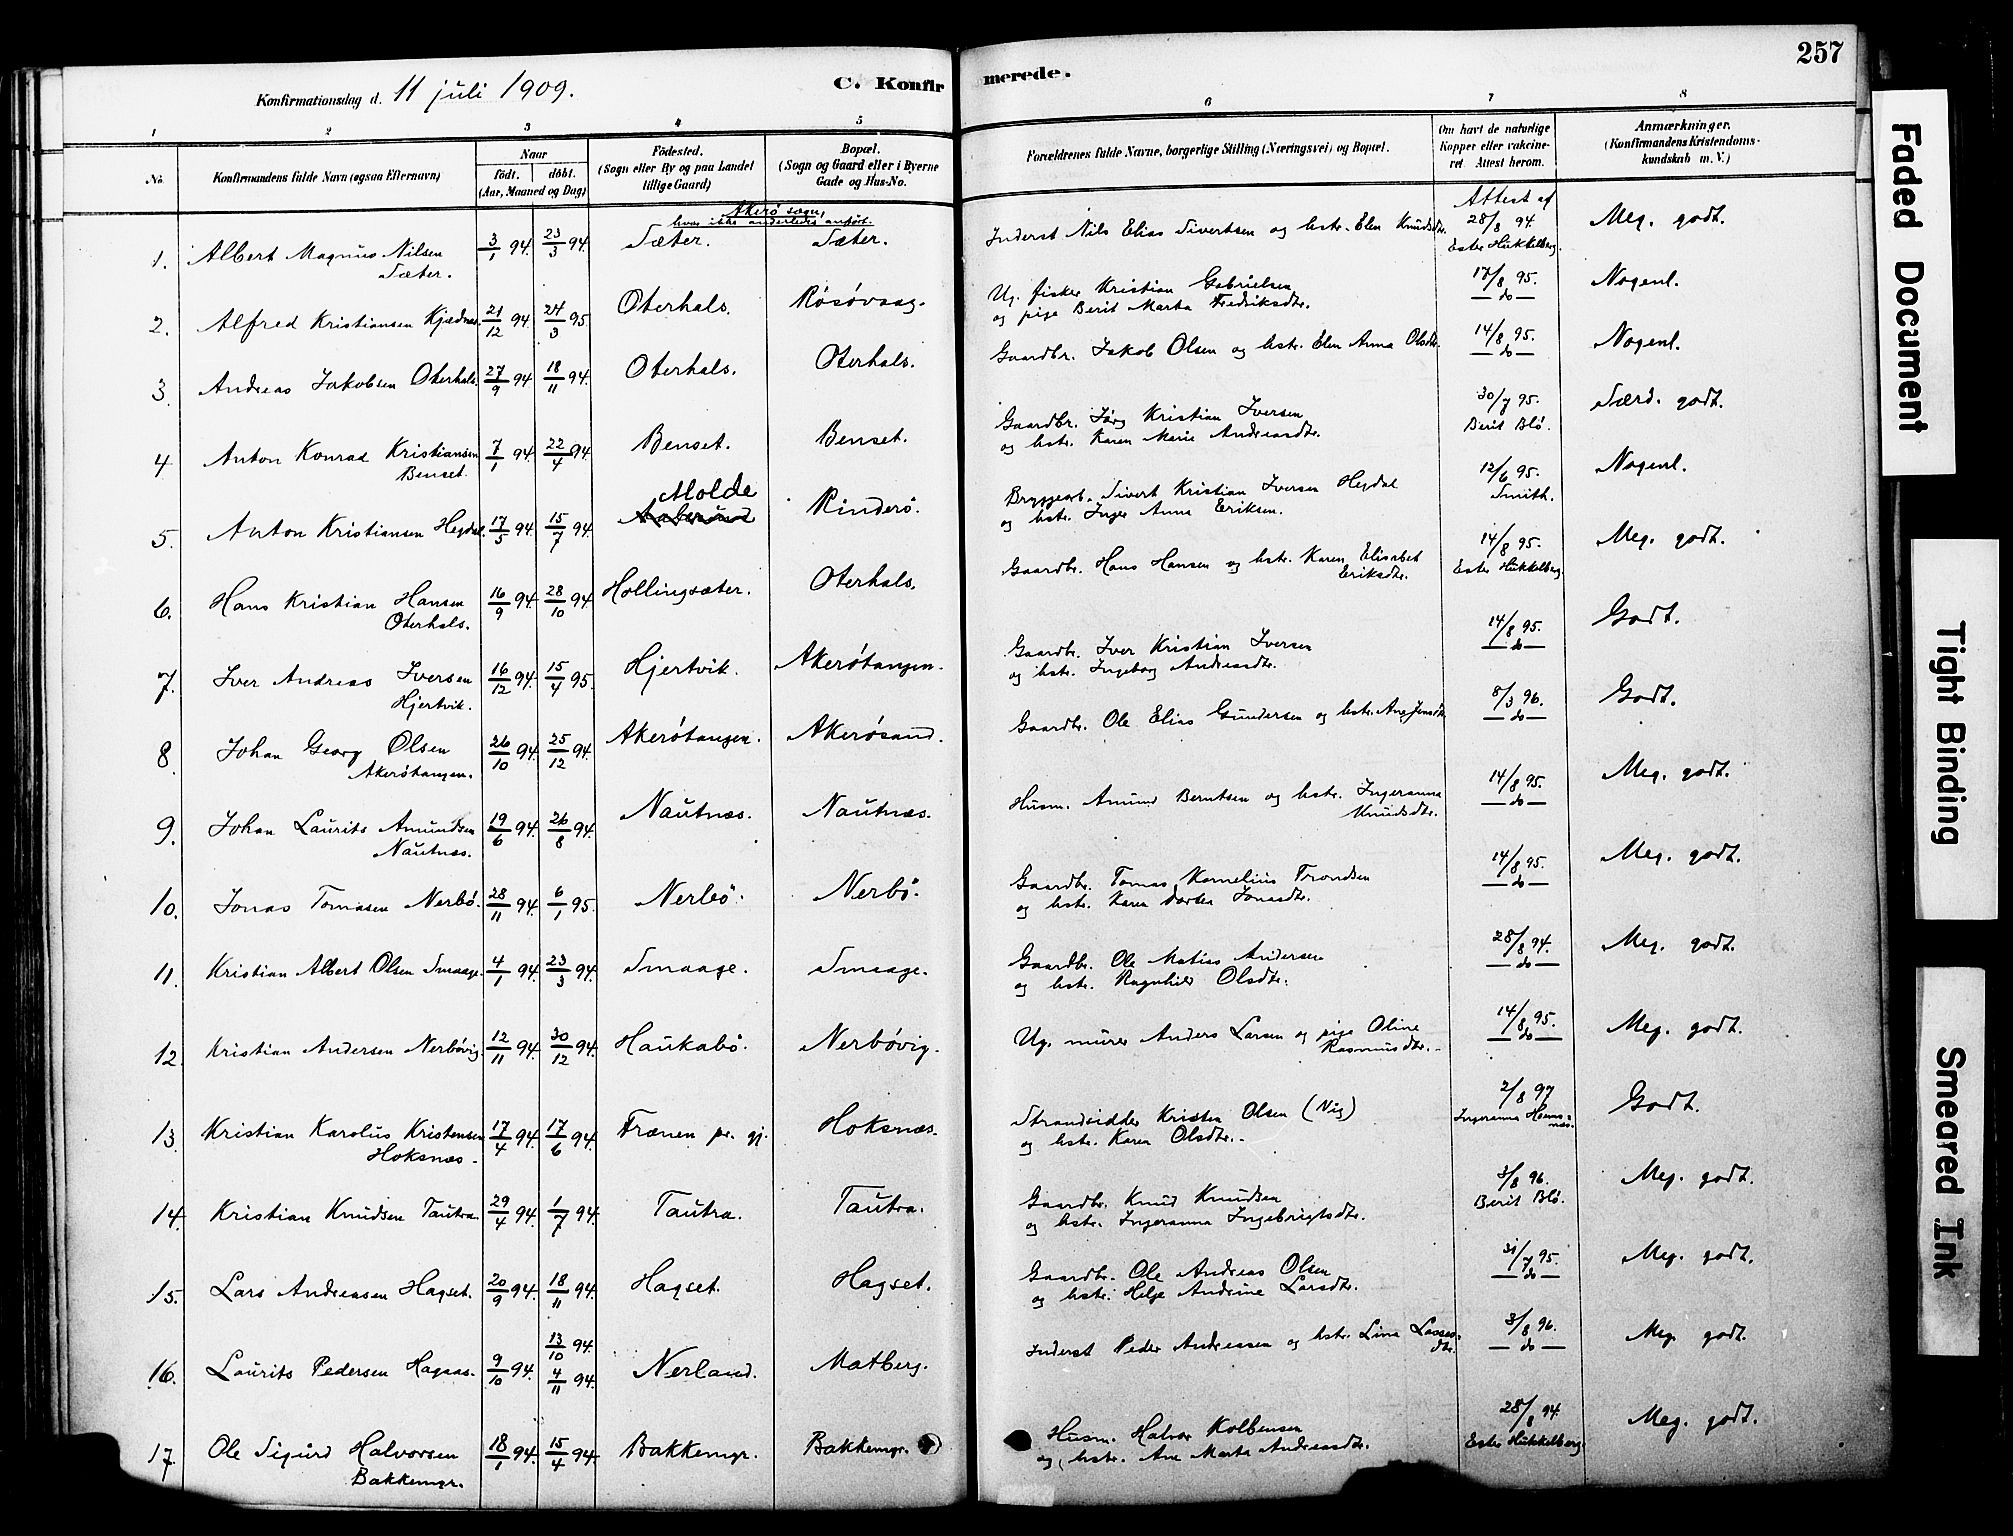 257
Konfirmationsdag d. 11 juli 1909.
C. Konfirmerede.
1 2 3 4 5 6 7 8
No. Konfirmandens fulde Navn (ogsaa Efternavn)
Naar
født. døbt.
(Aar, Maaned og Dag)
Fødested.
(Sogn eller By og paa Landet
tillige Gaard)
Bopæl.
(Sogn og Gaard eller i Byerne
Gade og Hus-No.
Forældrenes fulde Navne, borgerlige Stilling (Næringsvei) og Bopæl.
Om havt de naturlige
Kopper eller vakcine-
ret. Attest herom.
Anmærkninger.
(Konfirmandens Kristendoms-
kundskab m. V.)
Akerø sogn,
hvor ikke anderledes anført.
Attest af
1. Albert Magnus Nilsen 3/1 94. 23/3 94. Sæter. Sæter. Inderst Nils Elias Sivertsen og hstr. Elen Knudsdtr. 28/8 94. Meg. godt.
Sæter. Ester Hukkelberg.
2. Alfred Kristiansen Kjednes. 21/12 94. 24/3 95. Oterhals. Røsøvaag. Ug. fisker Kristian Gabrielsen 17/8 95. Nogenl.
og pige Berit Marta Fredriksdtr. — do —
3. Andreas Jakobsen Oterhals. 27/9 94. 18/11 94. Oterhals. Oterhals. Gaardbr. Jakob Olsen og hstr. Elen Anna Olsdtr. 14/8 95. Nogenl.
— do —
4 Anton Konrad Kristiansen 7/1 94. 22/4 94. Benset. Benset. Gaardbr. Jørg Kristian Iversen 30/7 95. Særd. godt.
Benset. og hstr. Karen Marie Andreasdtr. Berit Blø.
5. Anton Kristiansen Hegdal. 17/5 94. 15/7 94. Molde Rinderø. Bryggearb. Sivert Kristian Iversen Hegdal 12/6 95. Nogenl.
og hstr. Inger Anna Eriksen. Smith.
6. Hans Kristian Hansen 16/9 94. 28/10 94. Hollingsæter. Oterhals. Gaardbr. Hans Hansen og hstr. Karen Elisabet 14/8 95. Meg. godt.
Oterhals. Eriksdtr. Ester Hukkelberg.
7. Iver Andreas Iversen 16/12 94. 15/4 95. Hjertvik. Akerøtangen. Gaardbr. Iver Kristian Iversen 14/8 95. Godt.
Hjertvik. og hstr. Ingeborg Andreasdtr. — do —
8. Johan Georg Olsen 26/10 94. 25/12 94. Akerøtangen. Akerøsand. Gaardbr. Ole Elias Gundersen og hstr. Ane Jensdtr. 8/3 96. Godt.
Akerøtangen. — do —
9. Johan Laurits Amundsen 19/6 94. 26/8 94. Nautnæs. Nautnæs. Husm. Amund Berntsen og hstr. Ingeranna 14/8 95. Meg. godt.
Nautnæs. Knudsdtr. — do —
10. Jonas Tomasen Nerbø. 28/11 94. 6/1 95. Nerbø. Nerbø. Gaardbr. Tomas Kornelius Trondsen 14/8 95. Meg. godt.
og hstr. Karen Dortea Jonasdtr. — do —
11. Kristian Albert Olsen Smaage. 4/1 94. 23/3 94. Smaage. Smaage. Gaardbr. Ole Matias Andersen 28/8 94. Meg. godt.
og hstr. Ragnhild Olsdtr. — do —
12. Kristian Andersen Nerbøvig. 12/11 94. 30/12 94. Haukabø. Nerbøvig. Ug. murer Anders Larsen og pige Oline 14/8 95. Meg. godt.
Rasmusdtr. — do —
13. Kristian Karolus Kristensen 17/4 94. 17/6 94. Frænen pr. gj. Hoksnæs. Strandsidder Kristen Olsen (Nig) 2/8 97 Godt.
Hoksnæs. og hstr. Karen Olsdtr. Ingeranna
14. Kristian Knudsen Tautra. 29/4 94. 1/7 94. Tautra. Tautra. Gaardbr. Knud Knudsen 3/8 96. Meg. godt.
og hstr. Ingeranna Ingebrigtsdtr. Berit Blø.
15. Lars Andreasen Hagset. 20/9 94. 18/11 94. Hagset. Hagset. Gaardbr. Ole Andreas Olsen 31/7 95. Meg. godt.
og hstr. Helge Andrine Larsdtr. — do —
16. Laurits Pedersen Hagaas. 9/10 94. 13/10 94. 4/11 94. Nerland. Matberg. Inderst Peder Andreasen og hstr. Lina Lasses- 3/8 96. Meg. godt.
dtr. — do —
17. Ole Sigurd Halvorsen 18/1 94. 15/4 94. Bakkemyr. Bakkemyr. Husm. Halvor Kolbensen 28/8 94. Meg. godt.
Bakkemyr. og hstr. Ane Marta Andreasdtr. Ester Hukkelberg.
Faded Document
Tight Binding
Smeared Ink